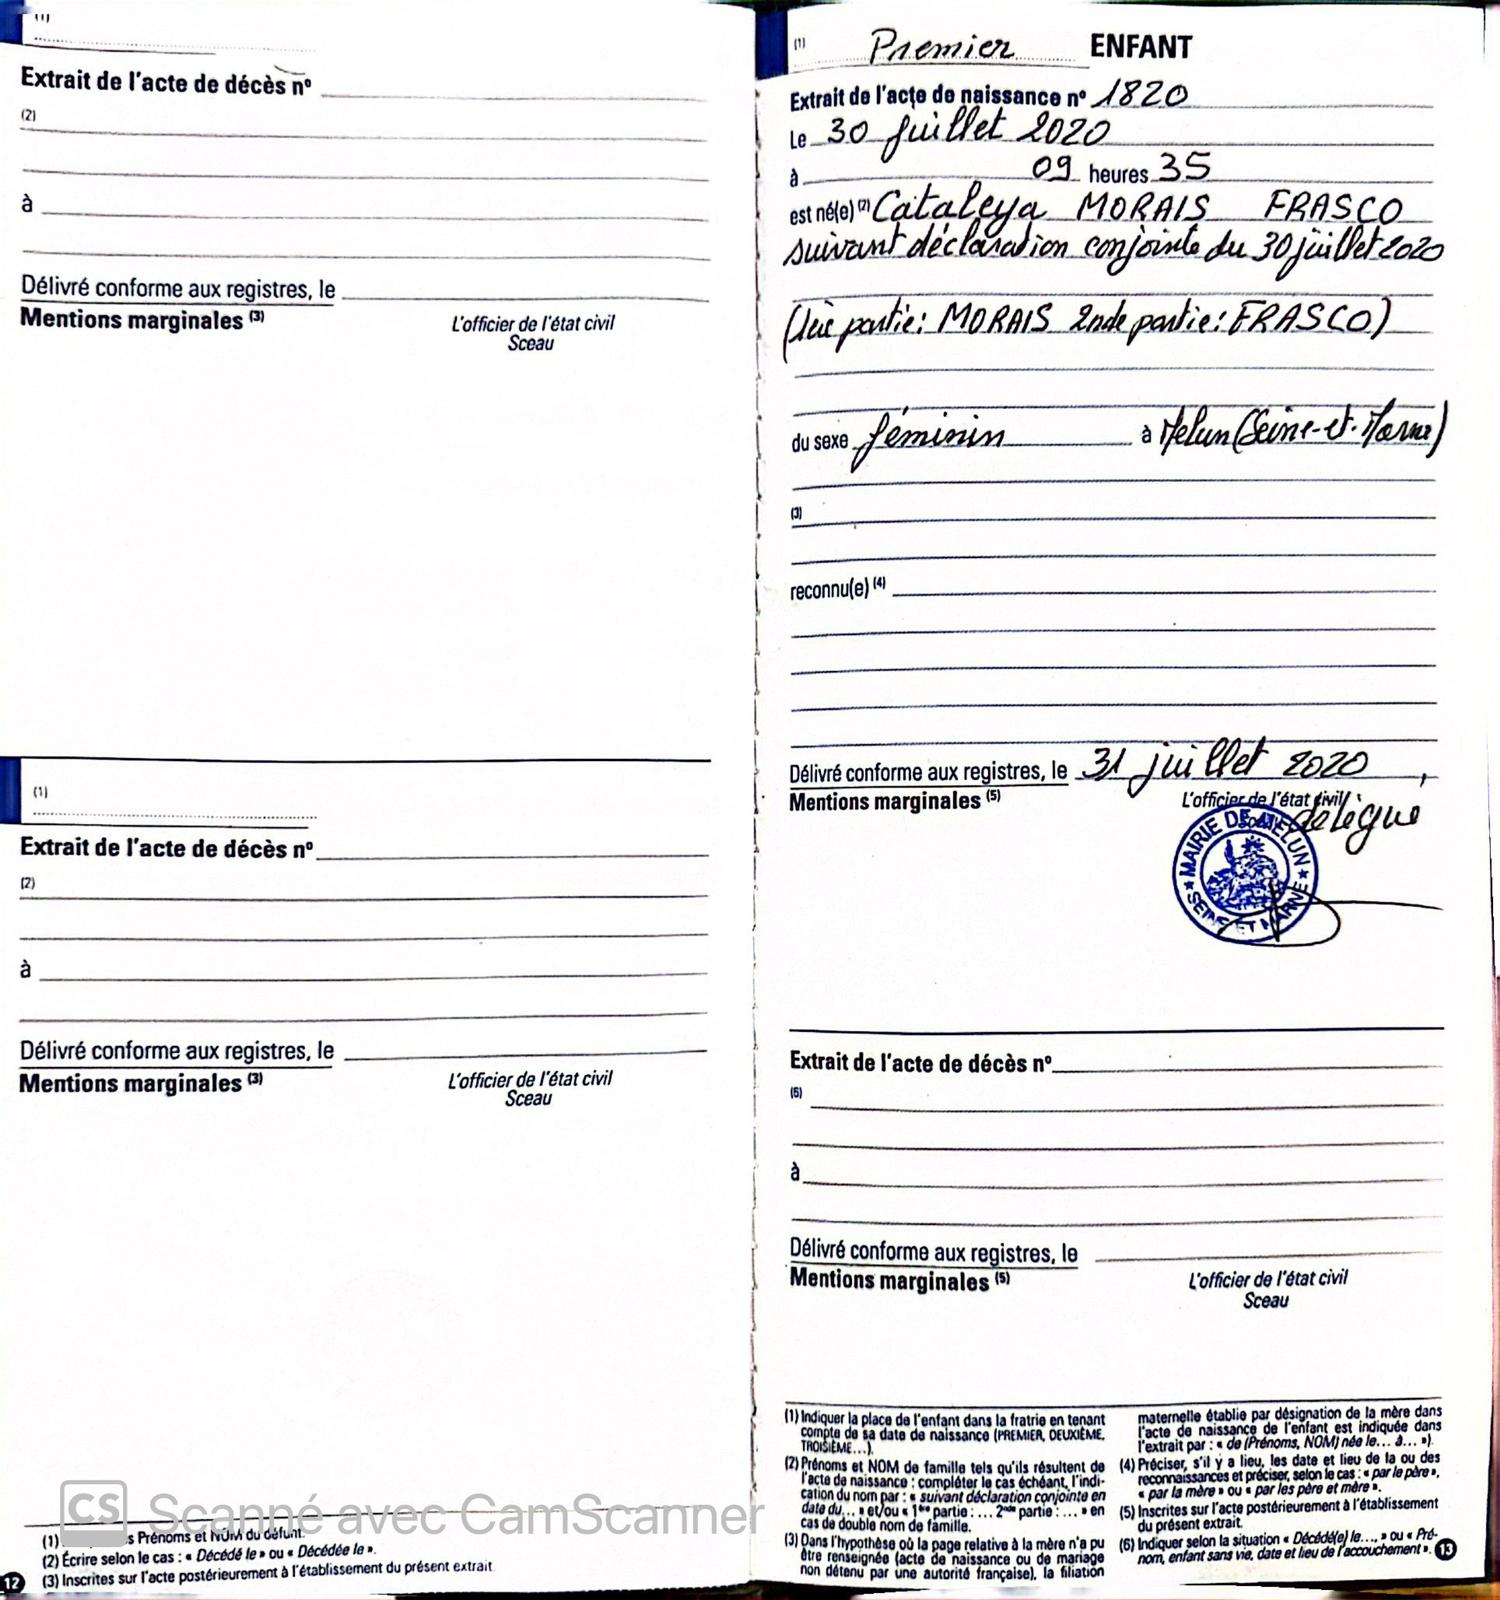 (1)
Extrait de l'acte de décès nº
(2)
à
Délivré conforme aux registres, le
Mentions marginales (3)
L'officier de l'état civil
Sceau
(1)
Extrait de l'acte de décès nº
(2)
à
Délivré conforme aux registres, le
Mentions marginales (3)
L'officier de l'état civil
Sceau
CS Scanné avec CamScanner
(1) s Prénoms et NOM du défunt.
(2) Écrire selon le cas : « Décédé le » ou « Décédée le ».
(3) Inscrites sur l'acte postérieurement à l'établissement du présent extrait
12
(1) Premier ENFANT
Extrait de l'acte de naissance nº 1820
Le 30 juillet 2020
à 09 heures 35
est né(e) (2) Cataleya MORAIS FRASCO
suivant déclaration conjointe du 30 juillet 2020
(1ère partie: MORAIS 2nde partie: FRASCO)
du sexe féminin à Melun (Seine-et-Marne)
(3)
reconnu(e) (4)
Délivré conforme aux registres, le 31 juillet 2020
Mentions marginales (5)
L'officier de l'état civil
délégué
MAIRIE DE MELUN
SEINE ET MARNE
Extrait de l'acte de décès nº
(6)
à
Délivré conforme aux registres, le
Mentions marginales (5)
L'officier de l'état civil
Sceau
(1) Indiquer la place de l'enfant dans la fratrie en tenant
compte de sa date de naissance (PREMIER, DEUXIÈME,
TROISIÈME...).
(2) Prénoms et NOM de famille tels qu'ils résultent de
l'acte de naissance ; compléter le cas échéant, l'indi-
cation du nom par : « suivant déclaration conjointe en
date du... » et/ou « 1ère partie : ... 2nde partie : ... » en
cas de double nom de famille.
(3) Dans l'hypothèse où la page relative à la mère n'a pu
être renseignée (acte de naissance ou de mariage
non détenu par une autorité française), la filiation
maternelle établie par désignation de la mère dans
l'acte de naissance de l'enfant est indiquée dans
l'extrait par : « de (Prénoms, NOM) née le... à... »).
(4) Préciser, s'il y a lieu, les date et lieu de la ou des
reconnaissances et préciser, selon le cas : « par le père »,
« par la mère » ou « par les père et mère ».
(5) Inscrites sur l'acte postérieurement à l'établissement
du présent extrait.
(6) Indiquer selon la situation « Décédé(e) le..., » ou « Pré-
nom, enfant sans vie, date et lieu de l'accouchement ».
13